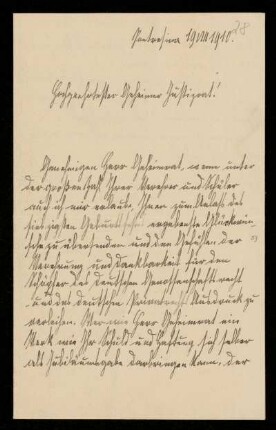 Pontresina 19 VIII 1910.
28
Hochgeehrtester Geheimer Justizrat!
Genehmigen Herr Geheimrat, wenn unter
der großen Zahl Ihrer Verehrer und Schüler
auch ich mir erlaube, Ihnen zum Anlaß des
siebzigsten Geburtstages ergebenste Glückwün-
sche zu übersenden und den Gefühlen der
Verehrung und Dankbarkeit für den
Schöpfer des deutschen Genossenschaftsrecht
und des deutschen Privatrechts Ausdruck zu
verleihen. Wer wie Herr Geheimrat ein
Werk wie Ihr Schuld und Haftung sich selber
als Jubiläumsgabe darbringen kann, der